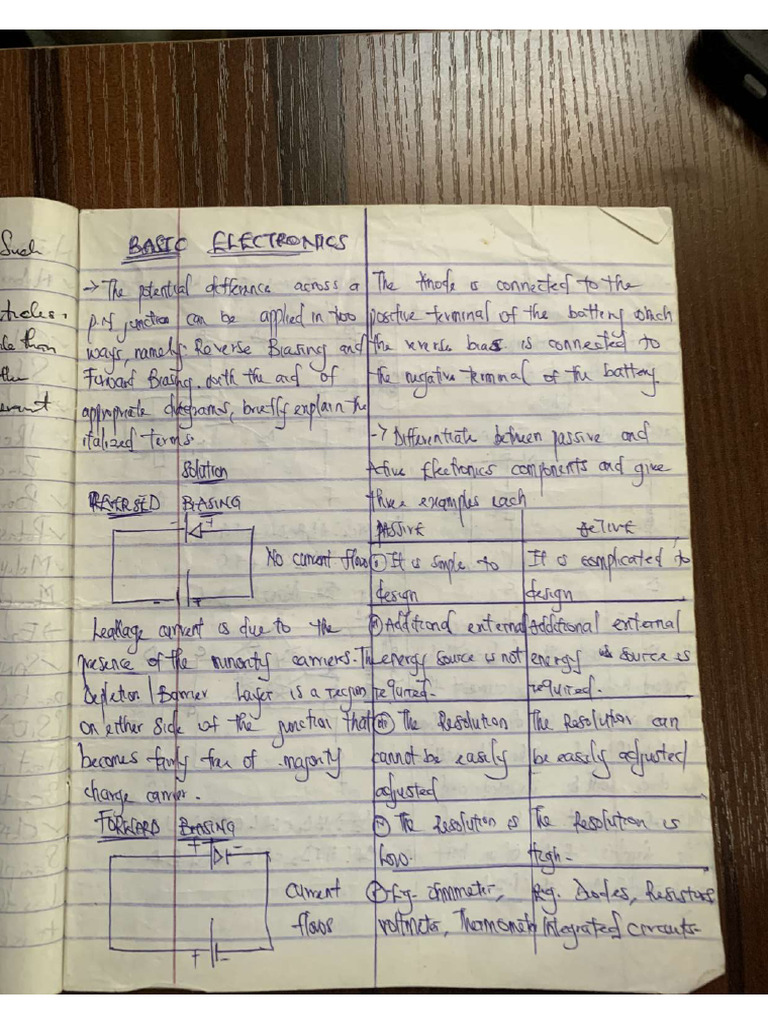 BASIC ELECTRONICS
→ The potential difference across a
P-N junction can be applied in two
ways, namely: Reverse Biasing and
Forward Biasing. With the aid of
appropriate diagrams, briefly explain the
italized terms.
Solution
REVERSED BIASING
- +
No current flows
- +
Leakage current is due to the
presence of the minority carriers. The
Depletion / Barrier Layer is a region
on either side of the junction that
becomes fairly free of majority
charge carrier.
FORWARD BIASING
+ -
Current
flows
+ -
The Anode is connected to the
positive terminal of the battery which
the reverse bias is connected to
the negative terminal of the battery.
→ Differentiate between passive and
Active Electronics components and give
three examples each
PASSIVE ACTIVE
(i) It is simple to It is complicated to
design design
(ii) Additional external Additional external
energy source is not energy source is
required. required.
(iii) The Resolution The Resolution can
cannot be easily be easily adjusted
adjusted
(iv) The Resolution is The Resolution is
Low. High.
(v) Eg. Ammeter, Eg. Diodes, Resistors
voltmeter, Thermometer Integrated circuits.
Such
than
the